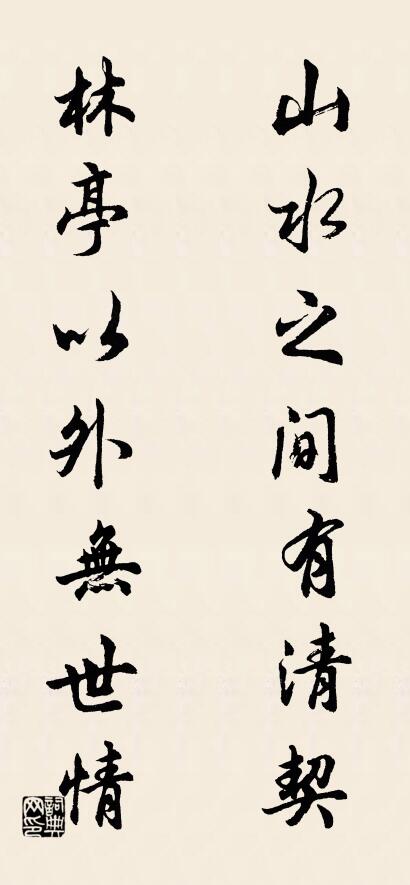 山水之間有清契
林亭以外無世情
詞典網印